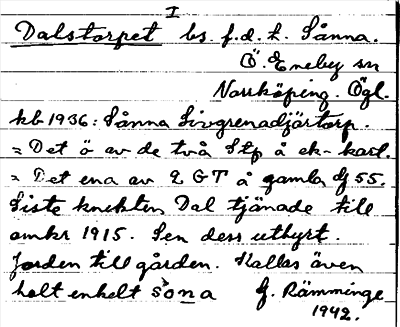 I
Dalstorpet bs. f.d. t. Sånna.
Ö. Eneby sn
Norrköping. Ögl.
kb 1936: Sånna Livgrenadjärtorp.
= Det ö av de två Stp å ek-kart.
= Det ena av 2 GT å gamla dj 55.
Siste knekten Dal tjänade till
omkr 1915. Sen dess uthyrt.
Jorden till gården. Kallas även
helt enkelt sona G. Rämminge
1942.